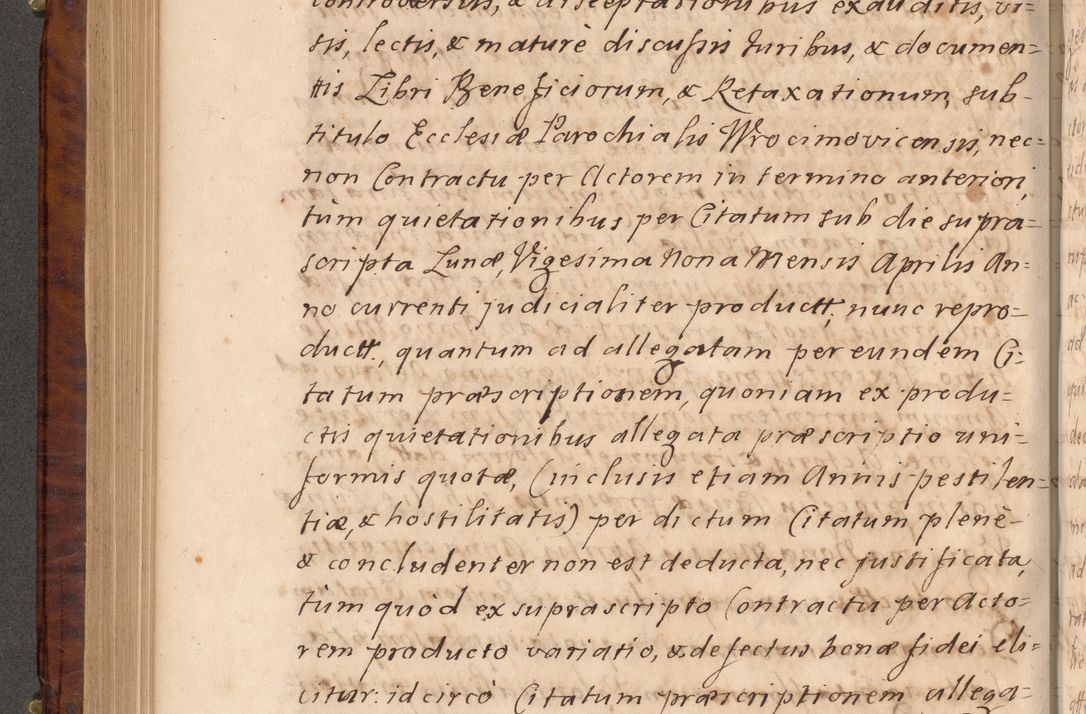 controversijs, & disceptationibus exauditis, vi-
sis, lectis, & maturè discussis Iuribus, & documen=
ttis Libri Beneficiorum, & Retaxationum, sub-
titulo Ecclesiæ Parochialis Wrocimovicensis, nec=
non Contractu per Actorem in termino anteriori,
tùm quietationibus per Citatum sub die supra=
scripta Lunæ, Vigesima Nona Mensis Aprilis An=
no currenti judicialiter productt, nunc repro=
ductt, quantum ad allegatam per eundem Ci=
tatum præscriptionem, quoniam ex produ=
ctis quietationibus allegata præscriptio uni=
formis quotæ, (inclusis etiam Annis pestilen=
tiæ, & hostilitatis) per dictum Citatum plenè-
& concludenter non est deducta, nec justificata,
tùm quòd ex suprascripto Contractu per Acto=
rem producto variatio, & defectus bonæ fidei eli=
citur: idcircò Citatum præscriptionem allega=